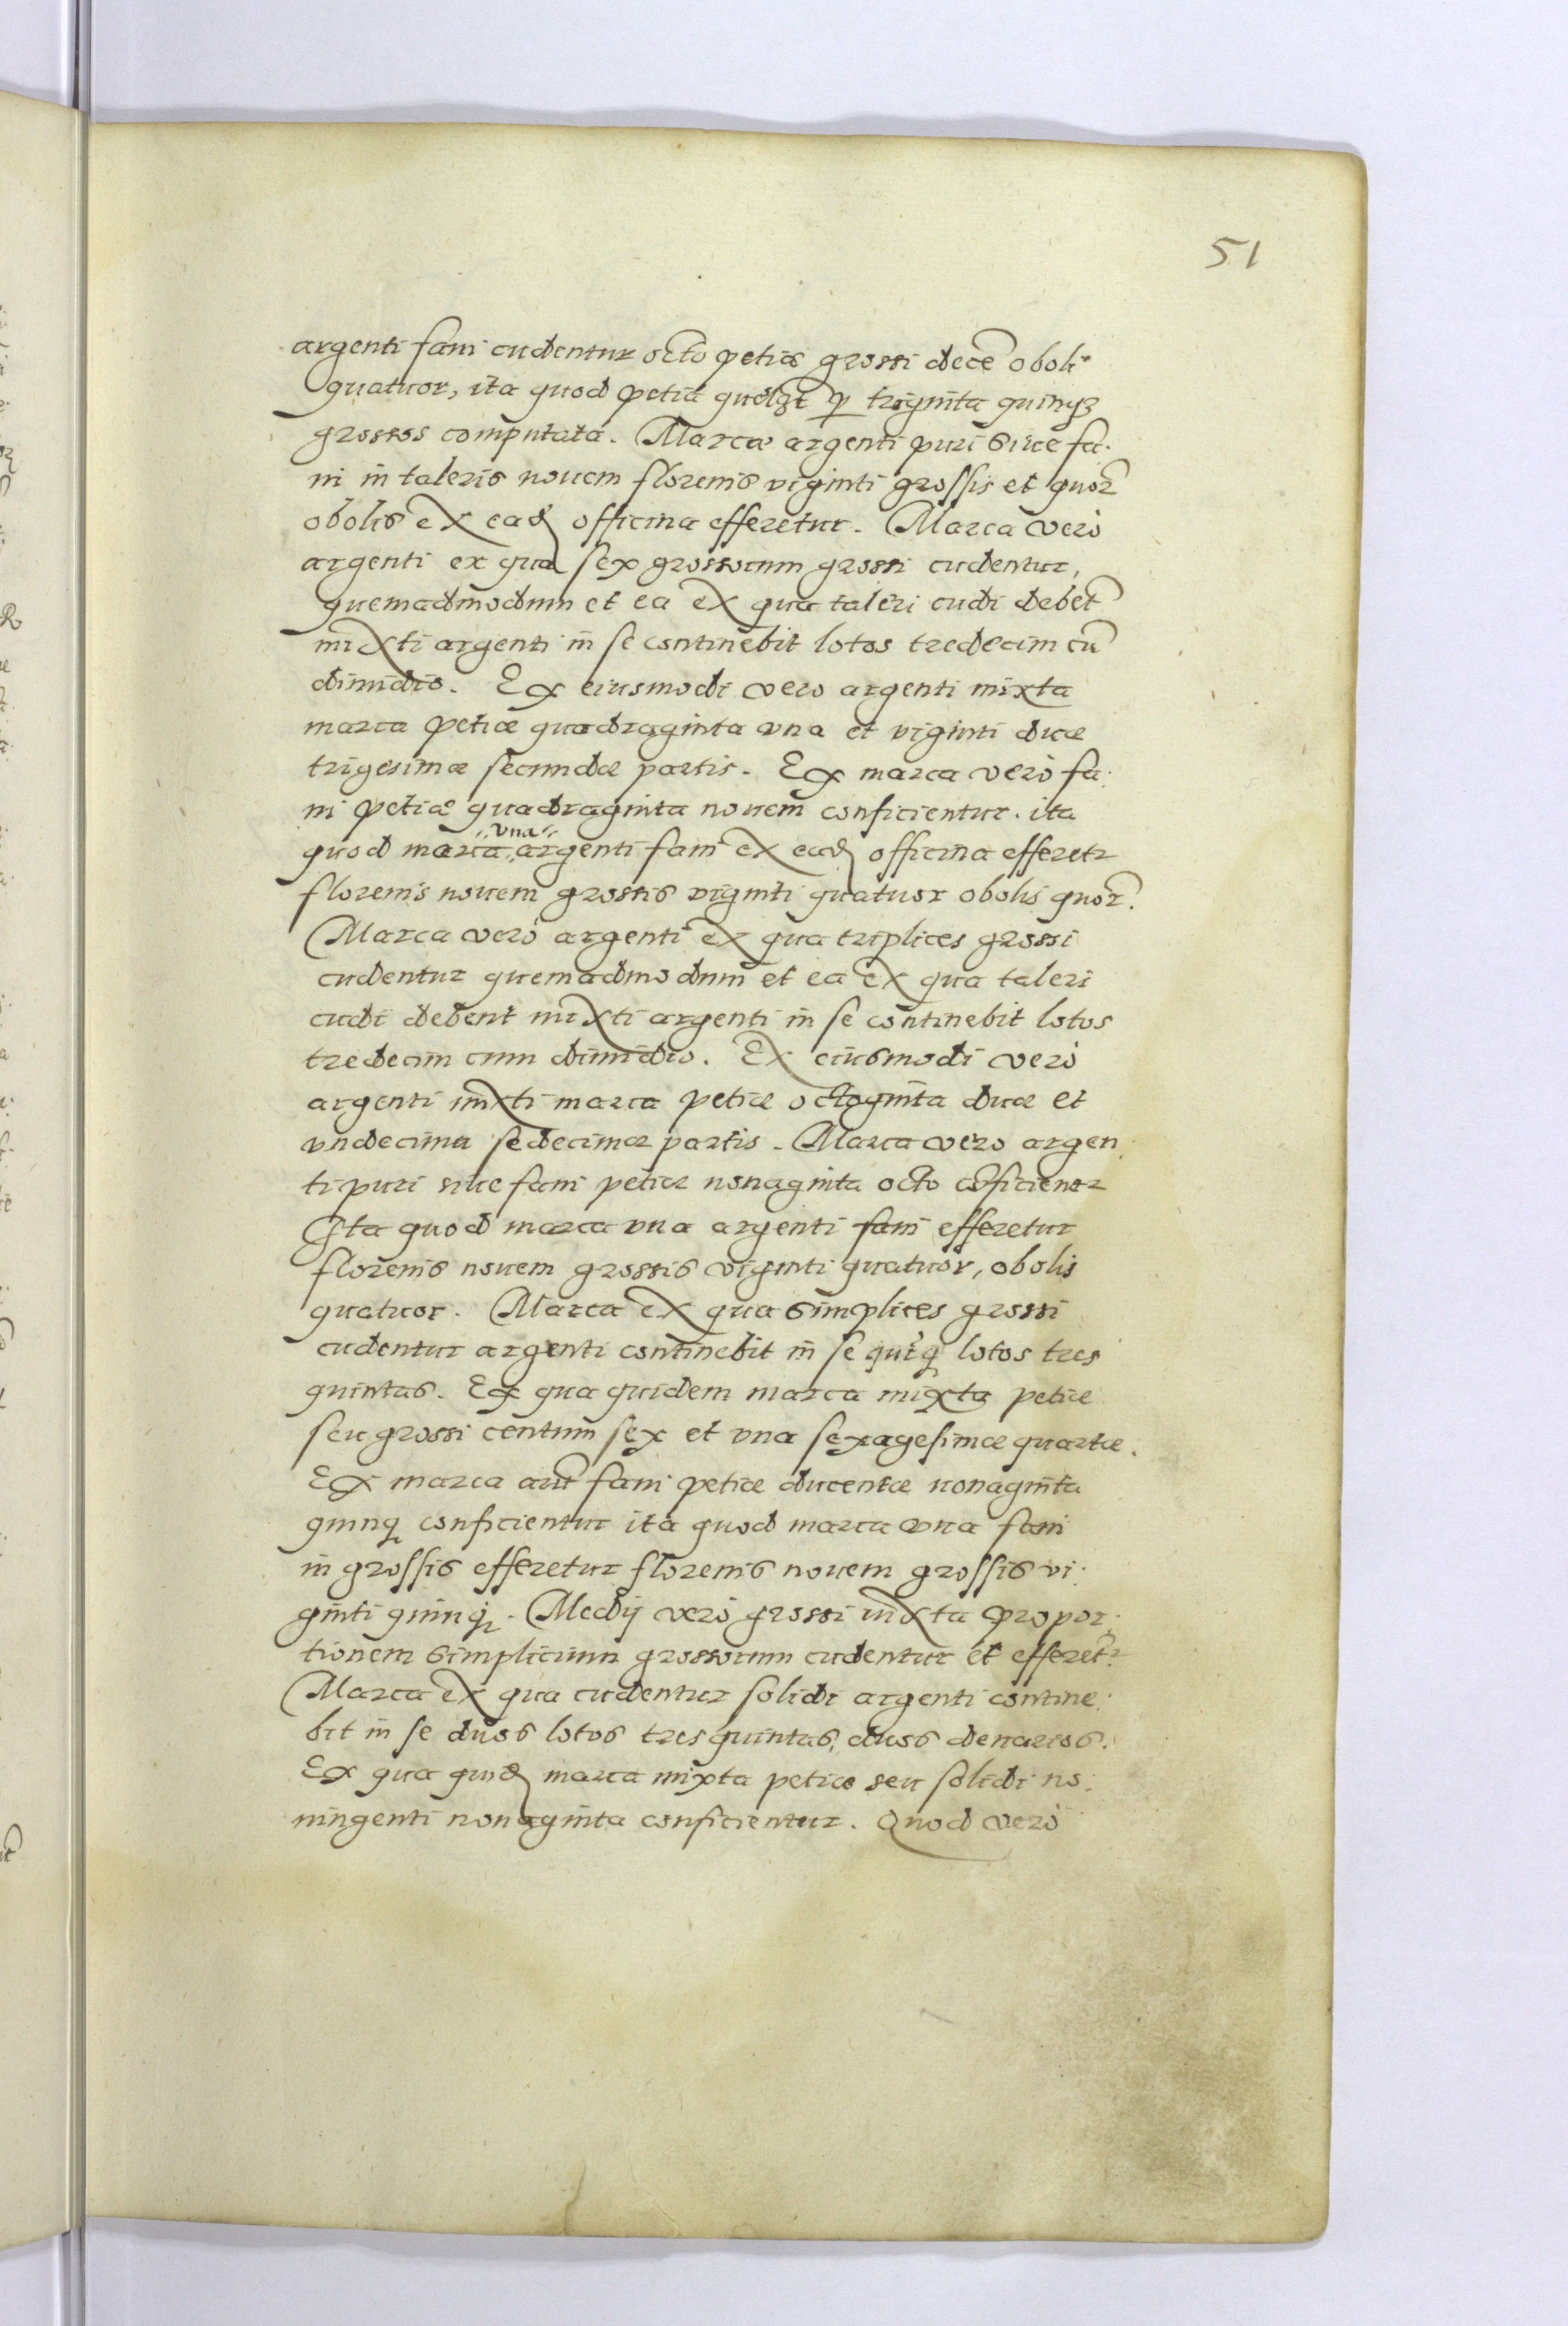 51
argenti fani cudentur octo petiæ grossi decē oboli
quatuor, ita quod petia quęlꝫt ꝑ triginta quinqꝫ
grossos computata. Marca argenti puri siue fa.
ni in taleris nouem florenis viginti grossis et quor̃
obolis ex ead officina efferetur. Marca verò
argenti ex qua sex grossorum grossi cudentur,
quemadmodum et ea ex qua taleri cudi debet̃
mixti argenti in se continebit lotos tredecim cū
dimidio. Ex eiusmodi vero argenti mixta
marca petiæ quadraginta vna et viginti duæ
trigesimæ secundæ partis. Ex marca verò fa.
ni petiæ quadraginta nouem conficientur. ita
quod marca vna argenti fani ex ead officina efferetr
florenis nouem grossis viginti quatuor obolis quor̃.
Marca verò argenti ex qua triplices grossi
cudentur quemadmodum et ea ex qua taleri
cudi debent mixti argenti in se continebit lotos
tredecim cum dimidio. Ex eiusmodi verò
argenti mixti marca petiæ octoginta duæ et
vndecima sedecimæ partis. Marca vero argen.
ti puri siue fani petiæ nonaginta octo cõficientr
Ita quod marca vna argenti fani efferetur
florenis nouem grossis viginti quatuor, obolis
quatuor. Marca ex qua simplices grossi
cudentur argenti continebit in se quiq lotos tres
quintas. Ex qua quidem marca mixta petiæ
seu grossi centum sex et vna sexagesimæ quartæ.
Ex marca aut̃ fani petiæ ducentæ nonaginta
quinq conficientur ita quod marca vna fani
in grossis efferetur florenis nouem grossis vi.
ginti quinq. Medij verò grossi iuxta propor.
tionem simplicium grossorum cudentur et efferet̃r
Marca ex qua cudentur solidi argenti contine.
bit in se duos lotos tres quintas, duos denarios.
Ex qua quid marca mixta petiæ seu solidi no.
ningenti nonaginta conficientur. Quod verò